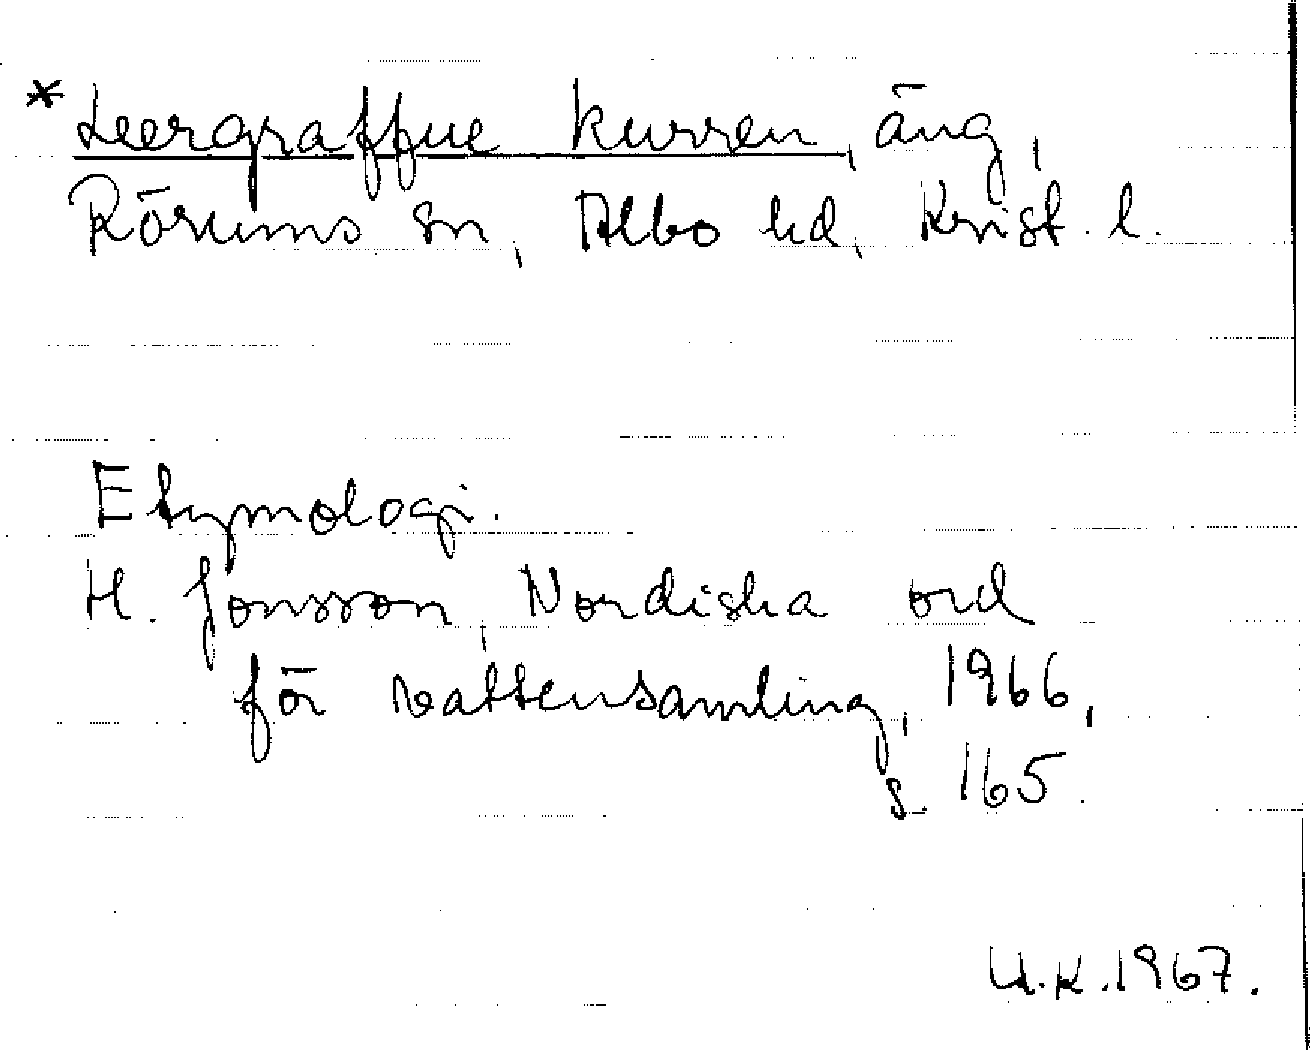 * Leergraffue kurren, äng,
Rörums sn, Albo hd, Krist. l.
Etymologi.
H. Jonsson, Nordiska ord
för vattensamling, 1966,
s. 165.
U.K. 1967.